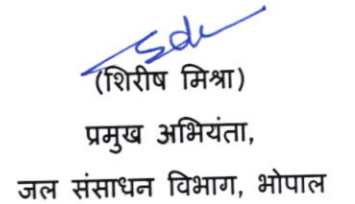 Sd/-
(शिरीष मिश्रा)
प्रमुख अभियंता,
जल संसाधन विभाग, भोपाल